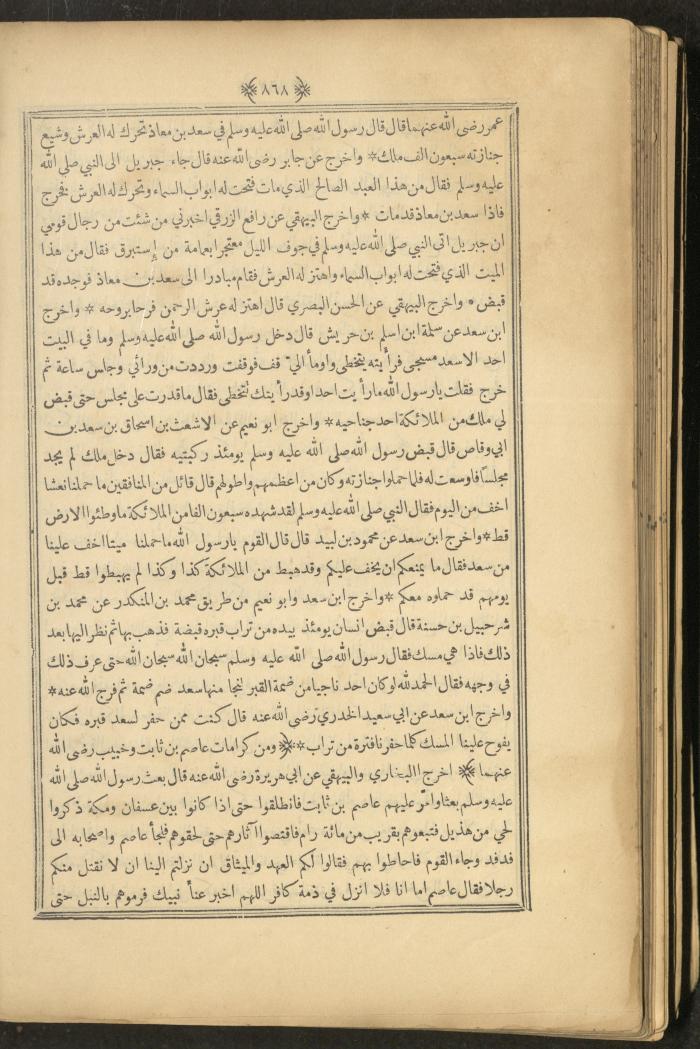 ٨٦٨
عمر رضي الله عنهما قال قال رسول الله صلى الله عليه وسلم في سعد بن معاذ تحرك له العرش وشيع
جنازته سبعون الف ملك * واخرج عن جابر رضى الله عنه قال جاء جبريل الى النبي صلى الله
عليه وسلم فقال من هذا العبد الصالح الذي مات فتحت له ابواب السماء وتحرك له العرش فخرج
فاذا سعد بن معاذ قد مات * واخرج البيهقي عن رافع الزرقي اخبرني من شئت من رجال قومي
ان جبريل اتى النبي صلى الله عليه وسلم في جوف الليل معتجرا بعمامة من إستبرق فقال من هذا
الميت الذي فتحت له ابواب السماء واهتز له العرش فقام مبادرا الى سعد بن معاذ فوجده قد
قبض * واخرج البيهقي عن الحسن البصري قال اهتز له عرش الرحمن فرحا بروحه * واخرج
ابن سعد عن سلمة ابن اسلم بن حريش قال دخل رسول الله صلى الله عليه وسلم وما في البيت
احد الا سعد مسجى فرأيته يتخطى واومأ اليّ قف فوقفت ورددت من ورائي وجلس ساعة ثم
خرج فقلت يا رسول الله ما رأيت احدا وقد رأيتك تتخطى فقال ما قدرت على مجلس حتى قبض
لي ملك من الملائكة احد جناحيه * واخرج ابو نعيم عن الاشعث بن اسحاق بن سعد بن
ابي وقاص قال قبض رسول الله صلى الله عليه وسلم يومئذ ركبتيه فقال دخل ملك لم يجد
مجلسًا فاوسعت له فلما حملوا جنازته وكان من اعظمهم واطولهم قال قائل من المنافقين ما حملنا نعشا
اخف من اليوم فقال النبي صلى الله عليه وسلم لقد شهده سبعون الفا من الملائكة ما وطئوا الارض
قط * واخرج ابن سعد عن محمود بن لبيد قال قال القوم يا رسول الله ما حملنا ميتا اخف علينا
من سعد فقال ما يمنعكم ان يخف عليكم وقد هبط من الملائكة كذا وكذا لم يهبطوا قط قبل
يومهم قد حملوه معكم * واخرج ابن سعد وابو نعيم من طريق محمد بن المنكدر عن محمد بن
شرحبيل بن حسنة قال قبض انسان يومئذ بيده من تراب قبره قبضة فذهب بها ثم نظر اليها بعد
ذلك فاذا هي مسك فقال رسول الله صلى الله عليه وسلم سبحان الله سبحان الله حتى عرف ذلك
في وجهه فقال الحمد لله لو كان احد ناجيا من ضمة القبر لنجا منها سعد ضم ضمة ثم فرج الله عنه *
واخرج ابن سعد عن ابي سعيد الخدري رضى الله عنه قال كنت ممن حفر لسعد قبره فكان
يفوح علينا المسك كلما حفرنا قترة من تراب * ومن كرامات عاصم بن ثابت وخبيب رضى الله
عنهما اخرج البخاري والبيهقي عن ابي هريرة رضى الله عنه قال بعث رسول الله صلى الله
عليه وسلم بعثا وامّر عليهم عاصم بن ثابت فانطلقوا حتى اذا كانوا بين عسفان ومكة ذكروا
لحي من هذيل فتبعوهم بقريب من مائة رام فاقتصوا آثارهم حتى لحقوهم فلجأ عاصم واصحابه الى
فدفد وجاء القوم فاحاطوا بهم فقالوا لكم العهد والميثاق ان نزلتم الينا ان لا نقتل منكم
رجلا فقال عاصم اما انا فلا انزل في ذمة كافر اللهم اخبر عنا نبيك فرموهم بالنبل حتى